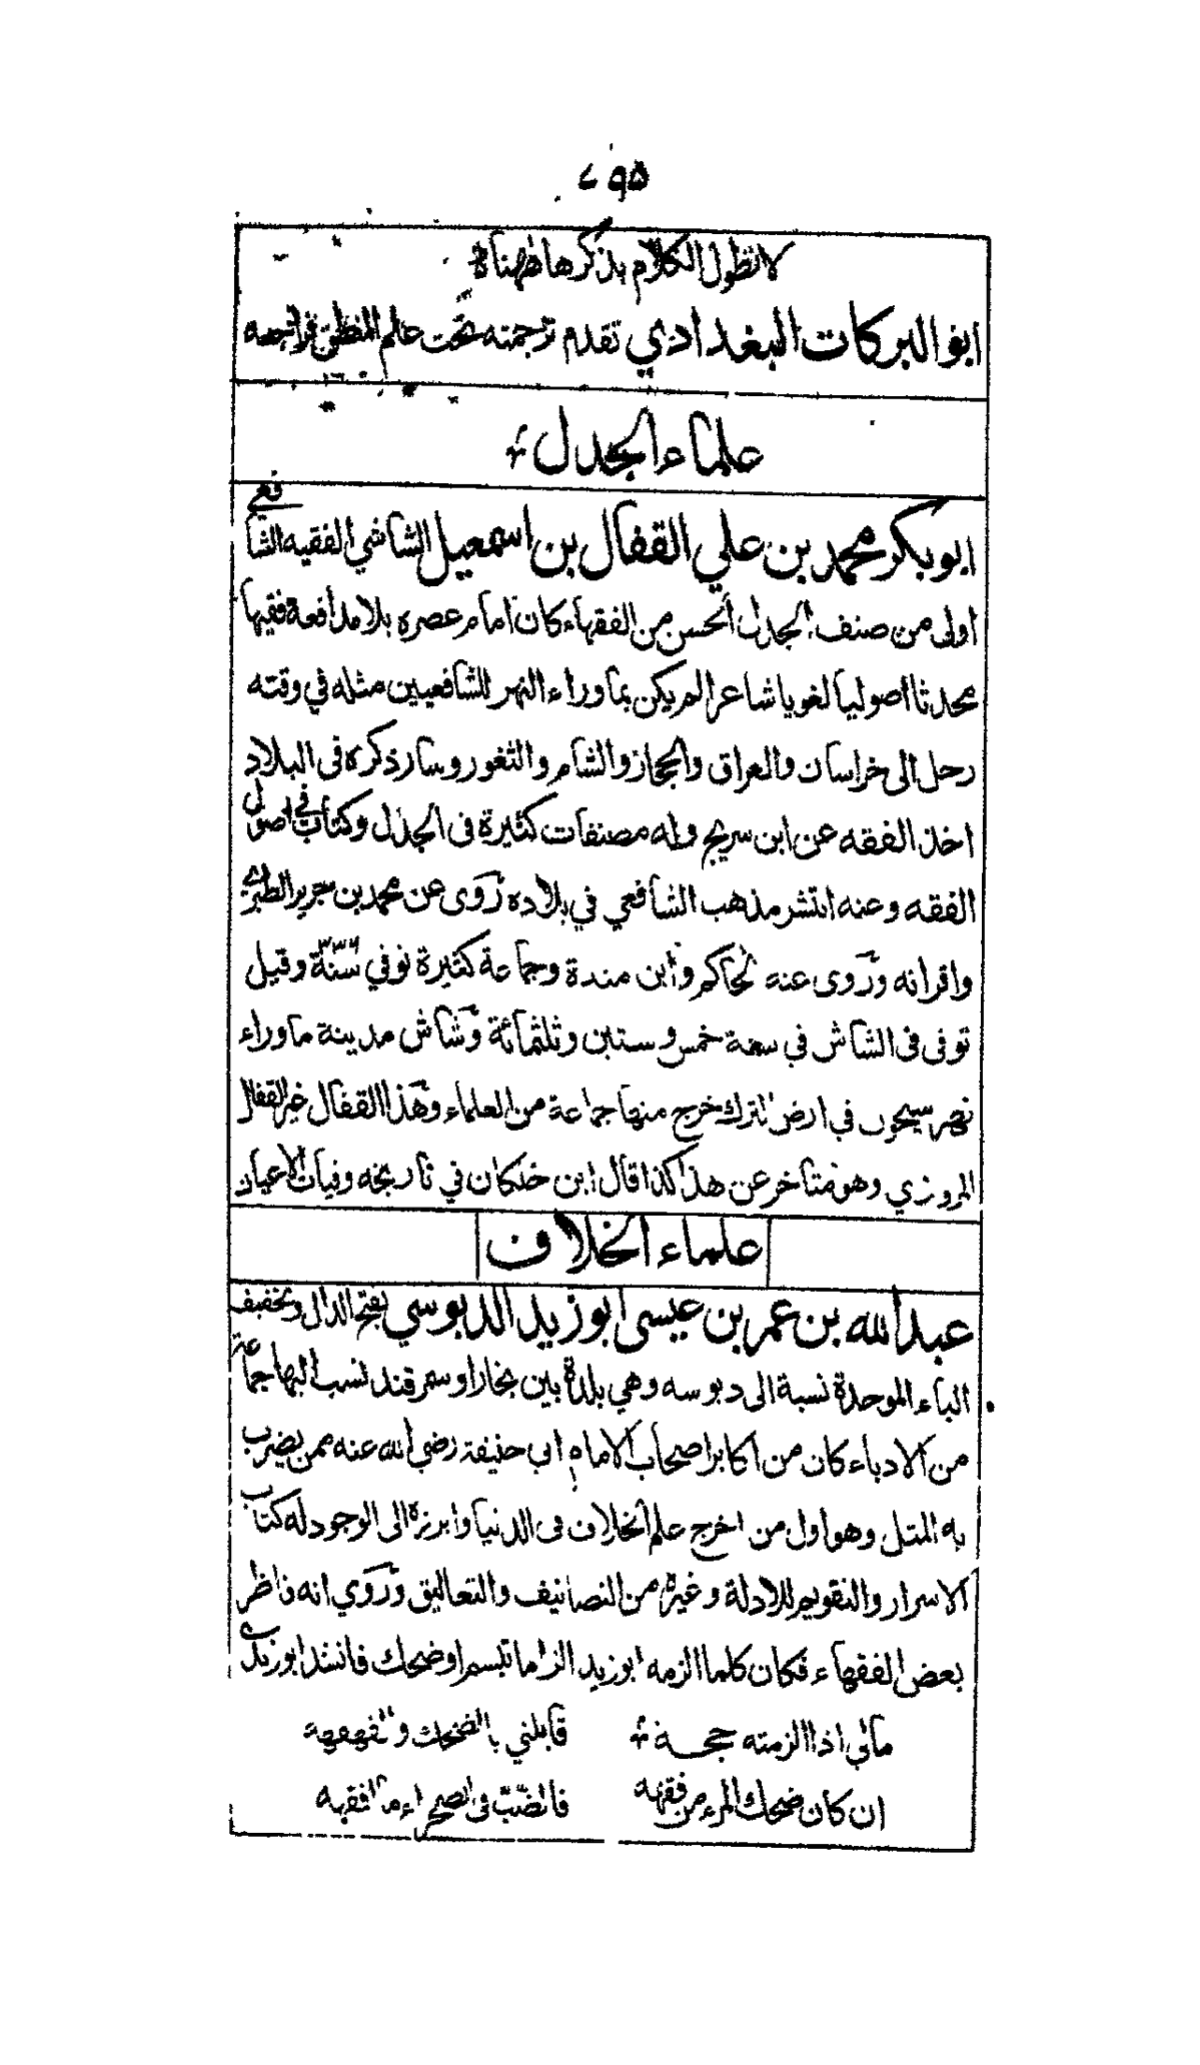 ٧٩٥
لا نطول الكلام بذكرها ههنا
ابو البركات البغدادي تقدم ترجمته تحت علم المنطق فراجعه
علماء الجدل
ابو بكر محمد بن علي القفال بن اسمعيل الشاشي الفقيه الشافعي
اولى من صنف الجدل الحسن من الفقهاء كان امام عصره بلا مدافعة فقيها
محدثا اصوليا لغويا شاعرا لم يكن بماوراء النهر للشافعيين مثله في وقته
رحل الى خراسان والعراق والحجاز والشام والثغور وسار ذكره في البلاد
اخذ الفقه عن ابن سريج وله مصنفات كثيرة في الجدل وكتاب في اصول
الفقه وعنه انتشر مذهب الشافعي في بلاده روى عن محمد بن جرير الطبري
واقرانه وروى عنه الحاكم وابن مندة وجماعة كثيرة توفي سنة ٣٣٦ وقيل
توفى في الشاش في سنة خمس وستين وثلثمائة وشاش مدينة ماوراء
نهر سيحون في ارض الترك خرج منها جماعة من العلماء وهذا القفال غير القفال
المروزي وهو متأخر عن هذا كذا قال ابن خلكان في تاريخه وفيات الاعيان
علماء الخلاف
عبد الله بن عمر بن عيسى ابو زيد الدبوسي بفتح الدال وتخفيف
الباء الموحدة نسبة الى دبوسه وهي بلدة بين بخارا وسمرقند نسب اليها جماعة
من الادباء كان من اكابر اصحاب الامام ابي حنيفة رضي الله عنه ممن يضرب
به المثل وهو اول من اخرج علم الخلاف في الدنيا وابرزه الى الوجود له كتاب
الاسرار والتقويم للادلة وغيره من التصانيف والتعاليق وروي انه ناظر
بعض الفقهاء فكان كلما الزمه ابو زيد الزاما تبسم او ضحك فانشد ابو زيد
مالي اذا الزمته حجة قابلني بالضحك والقهقهه
ان كان ضحك المرء من فقهه فالضب في الصحراء ما افقهه